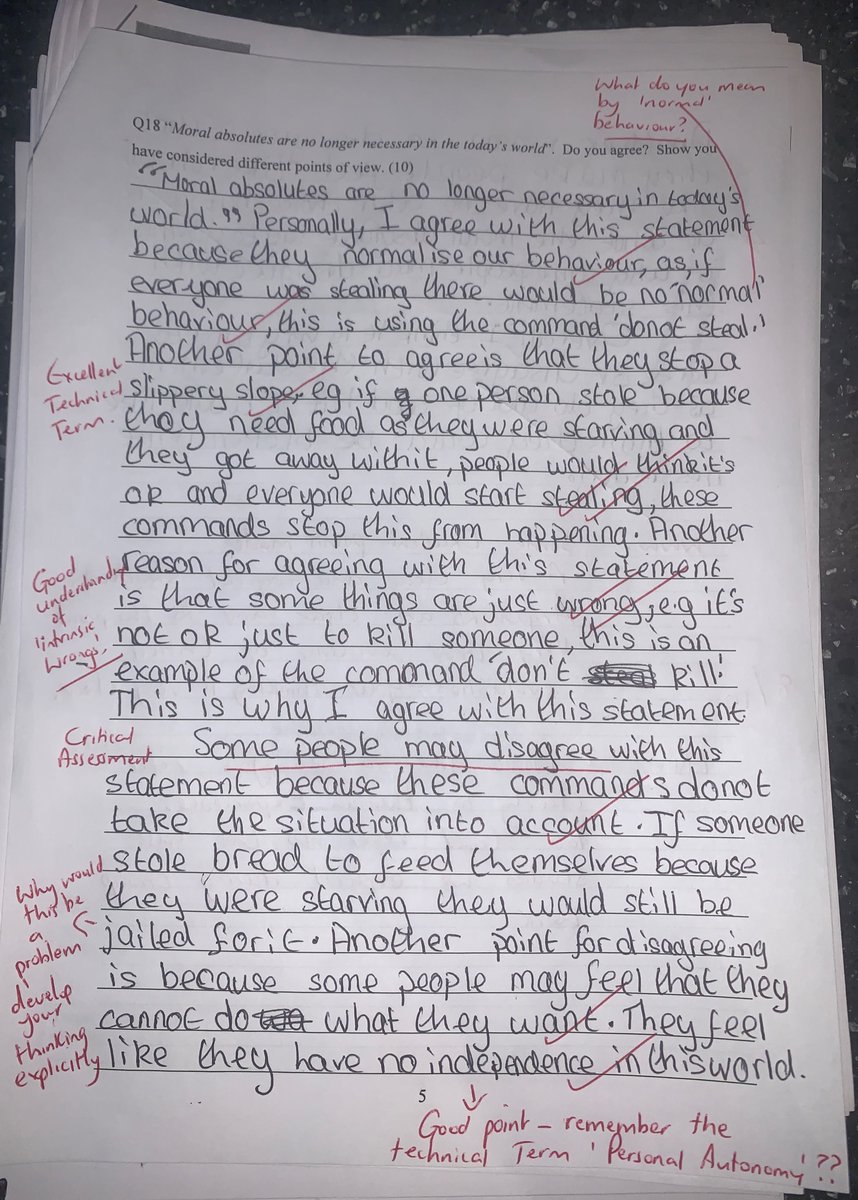 What do you mean
by 'normal'
behaviour?
Q18 "Moral absolutes are no longer necessary in the today's world". Do you agree? Show you
have considered different points of view. (10)
"Moral absolutes are no longer necessary in today's
world." Personally, I agree with this statement
because they normalise our behaviour, as, if
everyone was stealing there would be no 'normal'
behaviour, this is using the command 'donot steal.'
Another point to agree is that they stop a
Excellent
Technical
Term.
slippery slope, eg if one person stole because
they need food as they were starving and
they got away with it, people would think it's
ok and everyone would start stealing, these
commands stop this from happening. Another
reason for agreeing with this statement
Good
understanding
of
'intrinsic
wrongs'
is that some things are just wrong, e.g it's
not ok just to kill someone, this is an
example of the command 'don't kill.'
This is why I agree with this statement
Critical
Assessment
Some people may disagree with this
statement because these commands donot
take the situation into account. If someone
stole bread to feed themselves because
they were starving they would still be
jailed for it. Another point for disagreeing
Why would
this be
a
problem
develop
your
thinking
explicitly
is because some people may feel that they
cannot do what they want. They feel
like they have no independence in this world.
5
Good point - remember the
technical Term 'Personal Autonomy'??